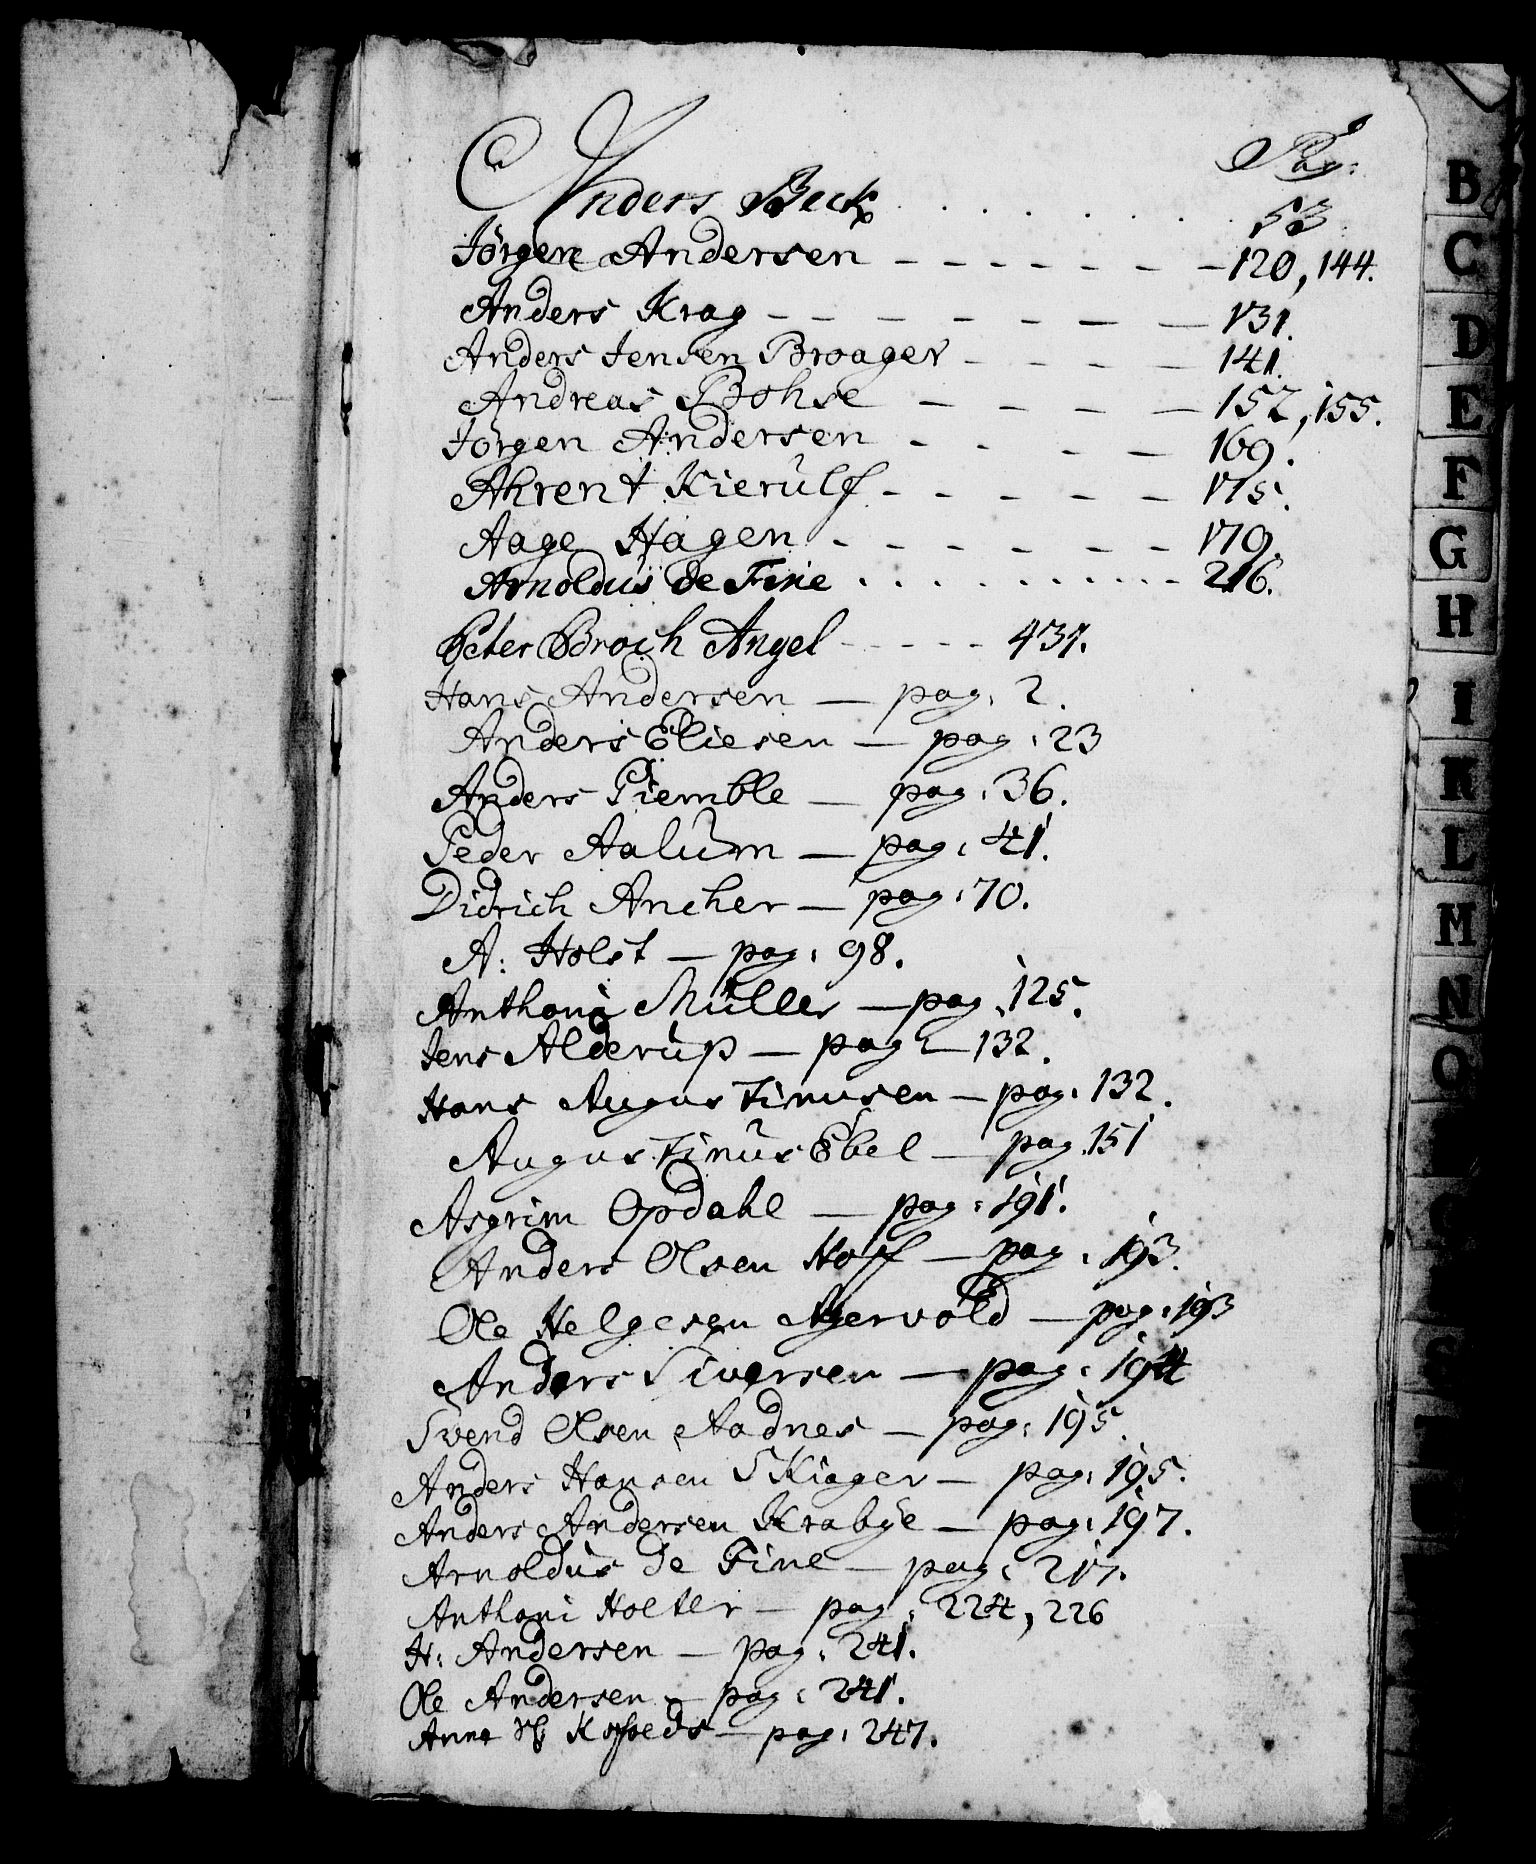 Pag:
Anders Beck . . . . . . . 53
Jørgen Andersen - - - - - - - 120, 144.
Anders Krag - - - - - - - - 131.
Anders Jensen Broager - - - - 141.
Andreas Bohse - - - - - 152, 155.
Jörgen Andersen - - - - 169.
Ahrent Kierulf - - - - - 175.
Aage Hagen - - - - - - 179.
Arnoldus de Fine . . . . . . . . . . . 216.
Peter Broch Angel - - - - - 431.
Hans Andersen — pag: 2.
Anders Eliesen — pag: 23
Anders Piemble — pag: 36.
Peder Aalum — pag: 41.
Didrich Ancher — pag: 70.
A: Holst — pag: 98.
Anthoni Müller — pag: 125.
Jens Alderup — pag — 132.
Hans Augustinusen — pag: 132.
Augustinus Ebel — pag. 151
Asgrim Opdahl — pag: 191.
Anders Olsen Hoff — pag: 193.
Ole Helgesen Agervold — pag: 193
Anders Siversen — pag: 194
Svend Olsen Aadnes — pag: 195.
Anders Hansen Skiager — pag: 195.
Anders Andersen Krabye — pag: 197.
Arnoldus de Fine — pag: 217.
Anthoni Holter — pag: 224, 226
H: Andersen — pag: 241.
Ole Andersen — pag: 241.
Anna Kofoeds — pag: 247.
B
C
D
E
F
G
H
I
K
L
M
N
O
S